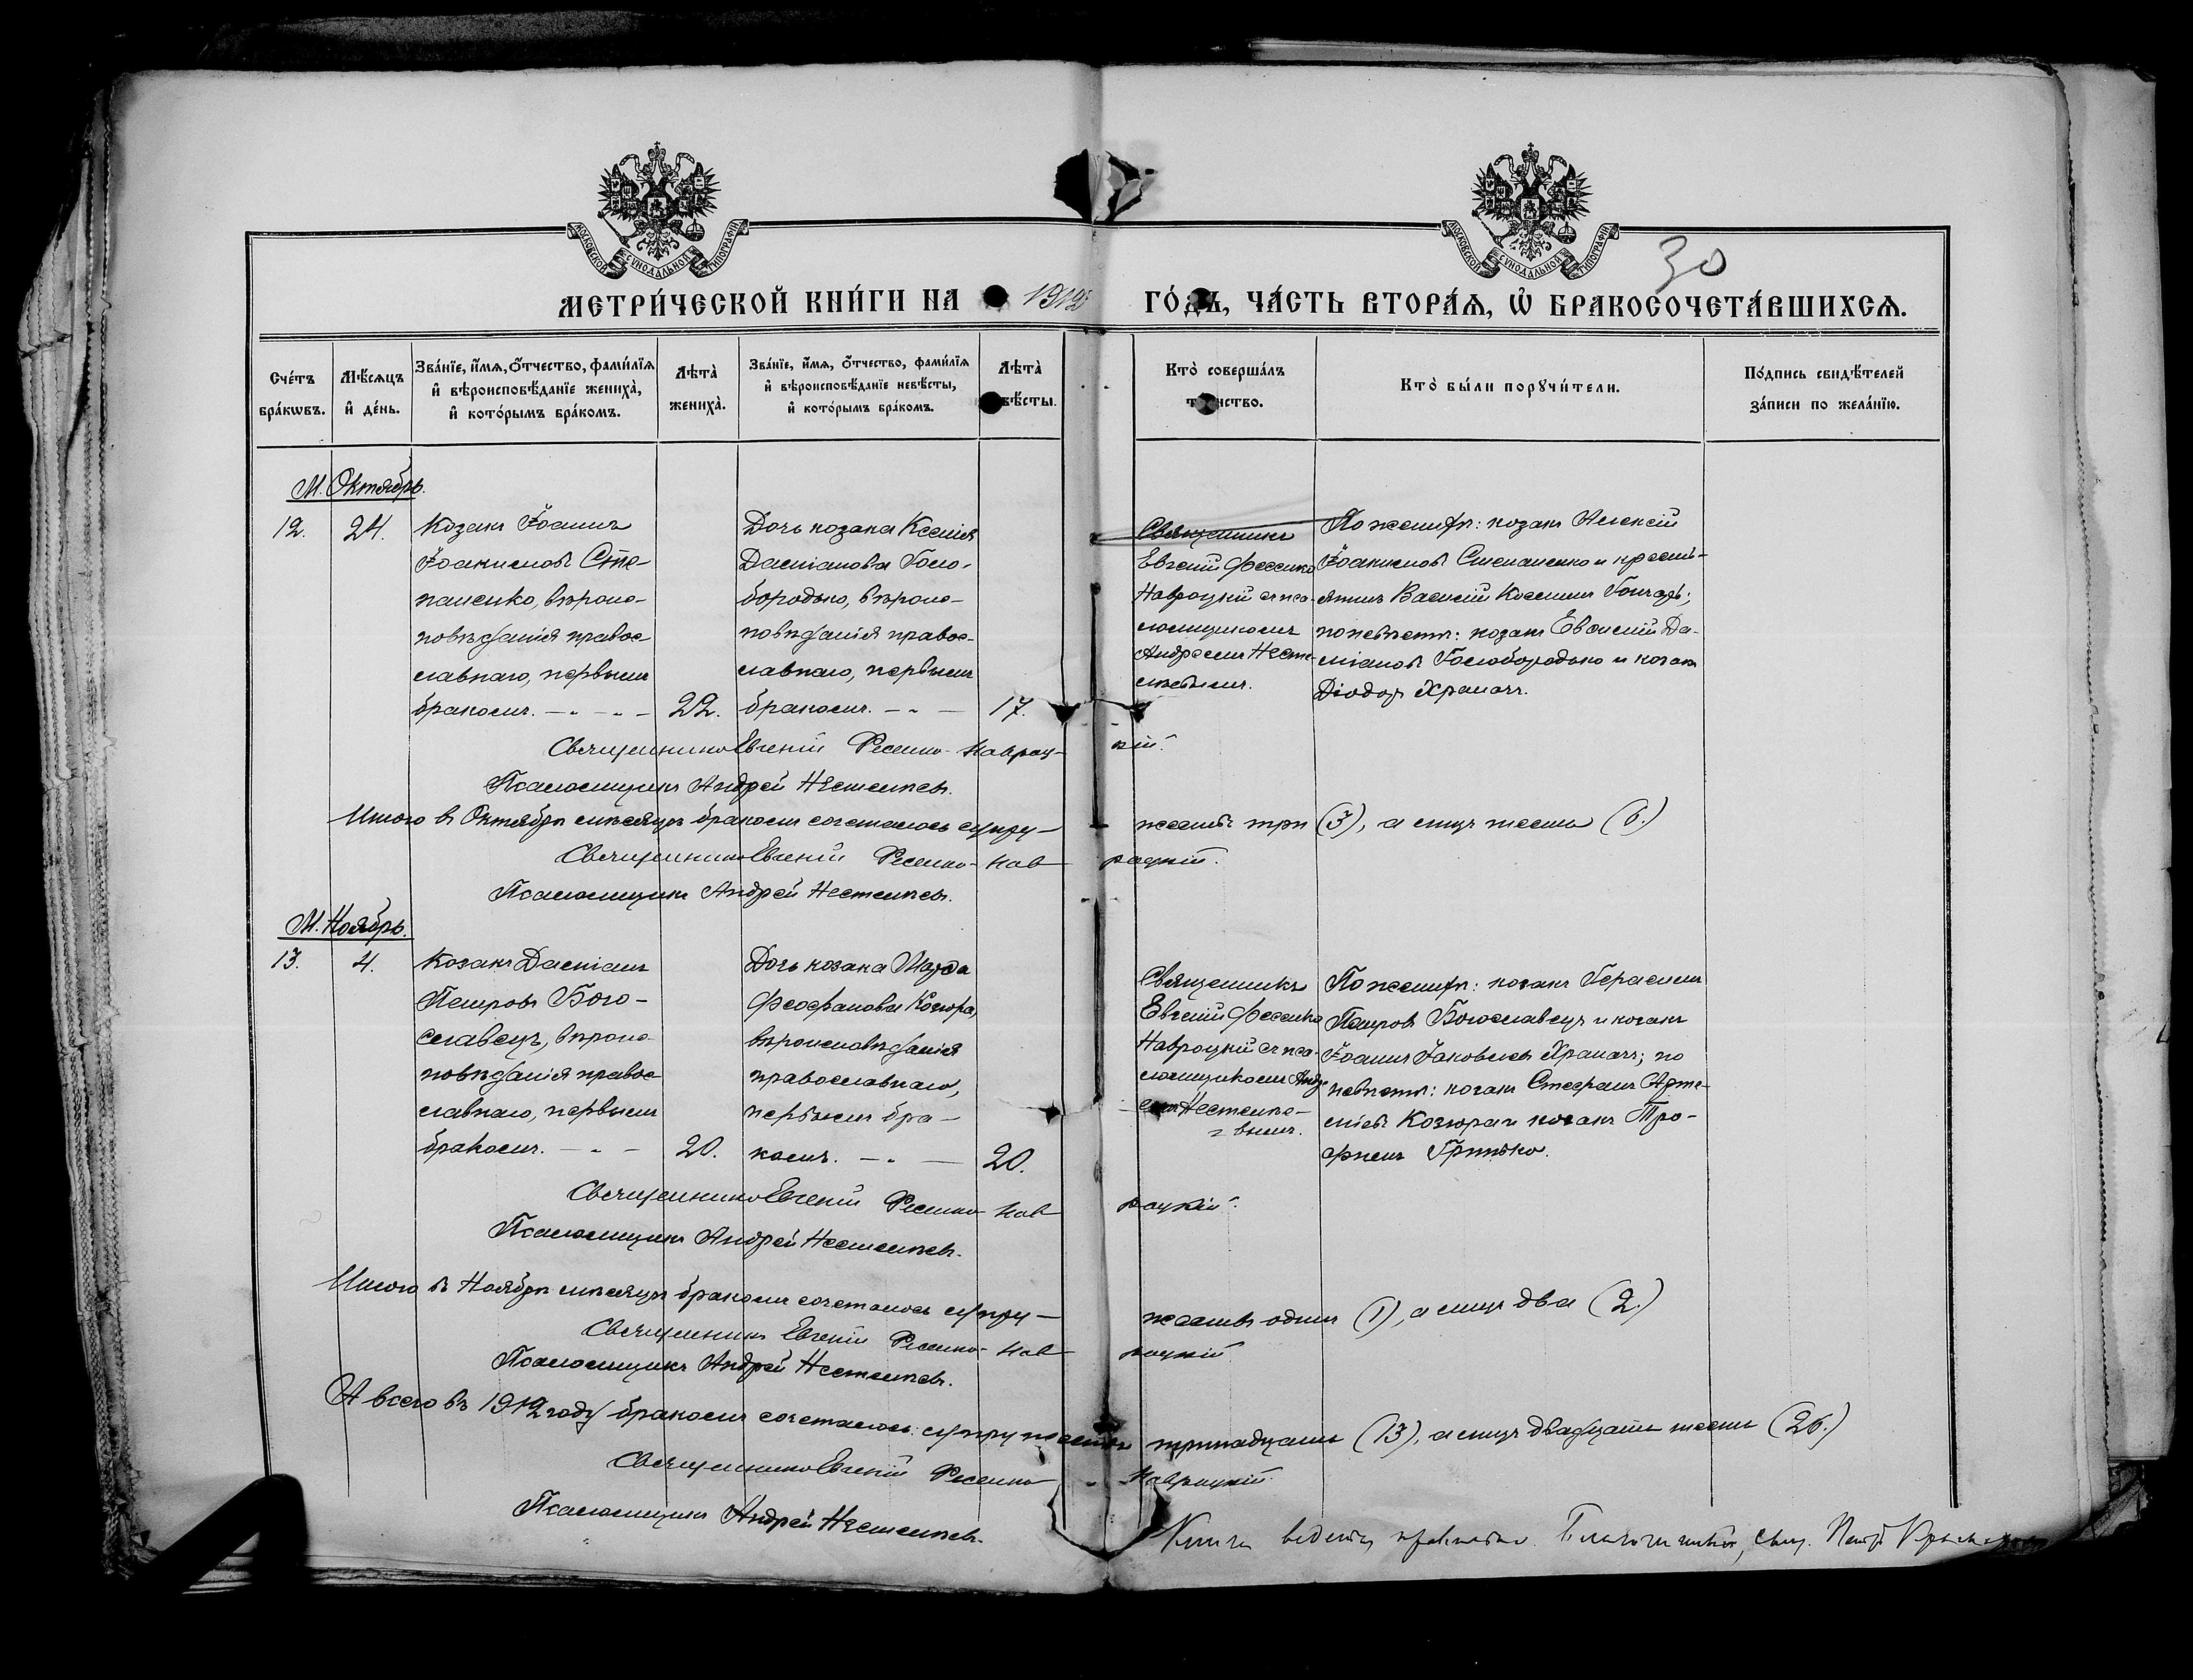 МОСКОВСКОЙ СѴНОДАЛЬНОЙ ТИПОГРАФІИ
МОСКОВСКОЙ СѴНОДАЛЬНОЙ ТИПОГРАФІИ
30
МЕТРИ́ЧЕСКОЙ КНИ́ГИ НА 1912 ГО́ДЪ, ЧА́СТЬ ВТОРА́Я, Ѡ҆ БРАКОСОЧЕТА́ВШИХСѦ.
Сче́тъ бра́кѡвъ.
Мѣ́сяцъ и҆ де́нь.
Зва́нїе, и҆́мя, ѻ҆́тчество, фами́лїя и҆ вѣроисповѣ́данїе жениха̀, и҆ кото́рымъ бра́комъ.
Лѣта̀ жениха̀.
Зва́нїе, и҆́мя, ѻ҆́тчество, фами́лїя и҆ вѣроисповѣ́данїе невѣ́сты, и҆ кото́рымъ бра́комъ.
Лѣта̀ невѣ́сты.
Кто̀ соверша́лъ таинство.
Кто̀ бы́ли порꙋчи́тели.
По́дпись свидѣ́телей за́писи по жела́нїю.
М. Октябрь.
12.
24.
Козакъ Іоаннъ
Іоакимовъ Сте-
паненко, вѣроис-
повѣданія правос-
лавнаго, первымъ
бракомъ.
22.
Дочь козака Ксенія
Даміанова Голо-
бородько, вѣроис-
повѣданія правос-
лавнаго, первымъ
бракомъ.
17.
Священникъ
Евгеній Фесенко
Навроцкій съ пса-
ломщикомъ
Андреемъ Несте-
По женихѣ: козакъ Алексій
Іоакимовъ Степаненко и кресть-
янинъ Василій Косминъ Гончаръ;
по невѣстѣ: козакъ Евсигній Да-
міановъ Голобородько и козакъ
Діодоръ Храпачъ.
Священникъ Евгеній Фесенко-Навроц-
кій.
Псаломщикъ Андрей
Итого в Октябрѣ мѣсяцѣ бракомъ сочеталось супру-
жествъ три (3), а лицъ шесть (6.)
Священникъ Евгеній Фесенко-Нав
роцкій.
Псаломщикъ Андрей
М. Ноябрь.
13.
4.
Козакъ Даміанъ
Петровъ Бого-
славецъ, вѣроис-
повѣданія правос-
лавнаго, первымъ
бракомъ.
20.
Дочь козака Марѳа
Феофанова Козюра,
вѣроисповѣданія
православнаго,
первымъ бра-
комъ.
20.
Священникъ
Евгеній Фесенко
Навроцкій съ пса-
ломщикомъ Андре-
По женихѣ: козакъ Герасимъ
Петровъ Богославецъ и козакъ
Іоаннъ Іаковлевъ Храпачъ; по
невѣстѣ: козакъ Стефанъ Арте-
міевъ Козюра и козакъ Тро-
фимъ Гринько.
Священникъ Евгеній Фесенко-Нав
роцкій.
Псаломщикъ Андрей
Итого въ Ноябрѣ мѣсяцѣ бракомъ сочеталось супру-
жествъ одинъ (1), а лицъ два (2.)
Священникъ Евгеній Фесенко-Нав
роцкій.
Псаломщикъ Андрей
А всего въ 1912 году бракомъ сочеталось супружествъ тринадцать (13), а лицъ двадцать шесть (26.)
Священникъ Евгеній Фесенко
Навроцкій.
Псаломщикъ Андрей
Книга ведется правильно. Благочинный, свящ. Петръ